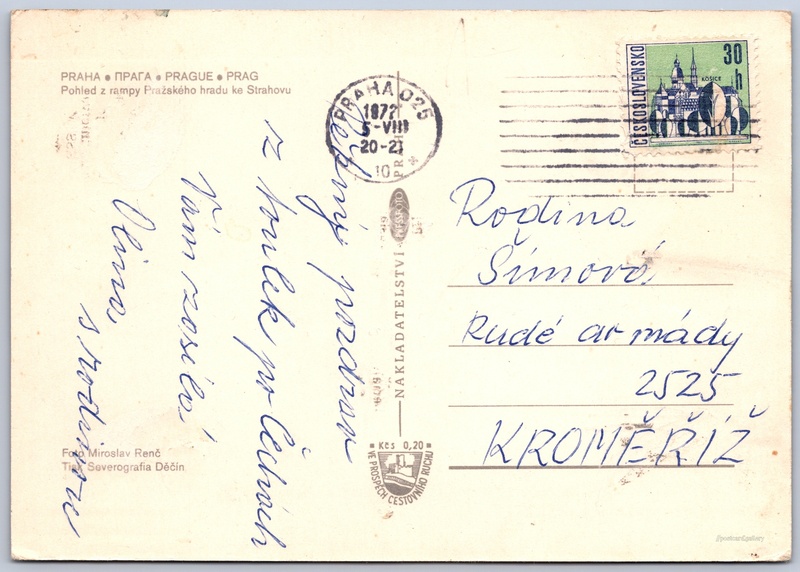 PRAHA ● ПРАГА ● PRAGUE ● PRAG
Pohled z rampy Pražského hradu ke Strahovu
Letný pozdrav
z toulek po Čechách
Vám zasílá
Olina,
s rodinou
Foto Miroslav Renč
Tisk Severografia Děčín
PRAHA 025
1972
5-VIII
20-21
10
NAKLADATELSTVÍ
PRESSFOTO
PRAHA
Kčs 0,20
VE PROSPĚCH CESTOVNÍHO RUCHU
ČESKOSLOVENSKO
30 h
KOŠICE
Rodina
Šimová
Rudé armády
2525
KROMĚŘÍŽ